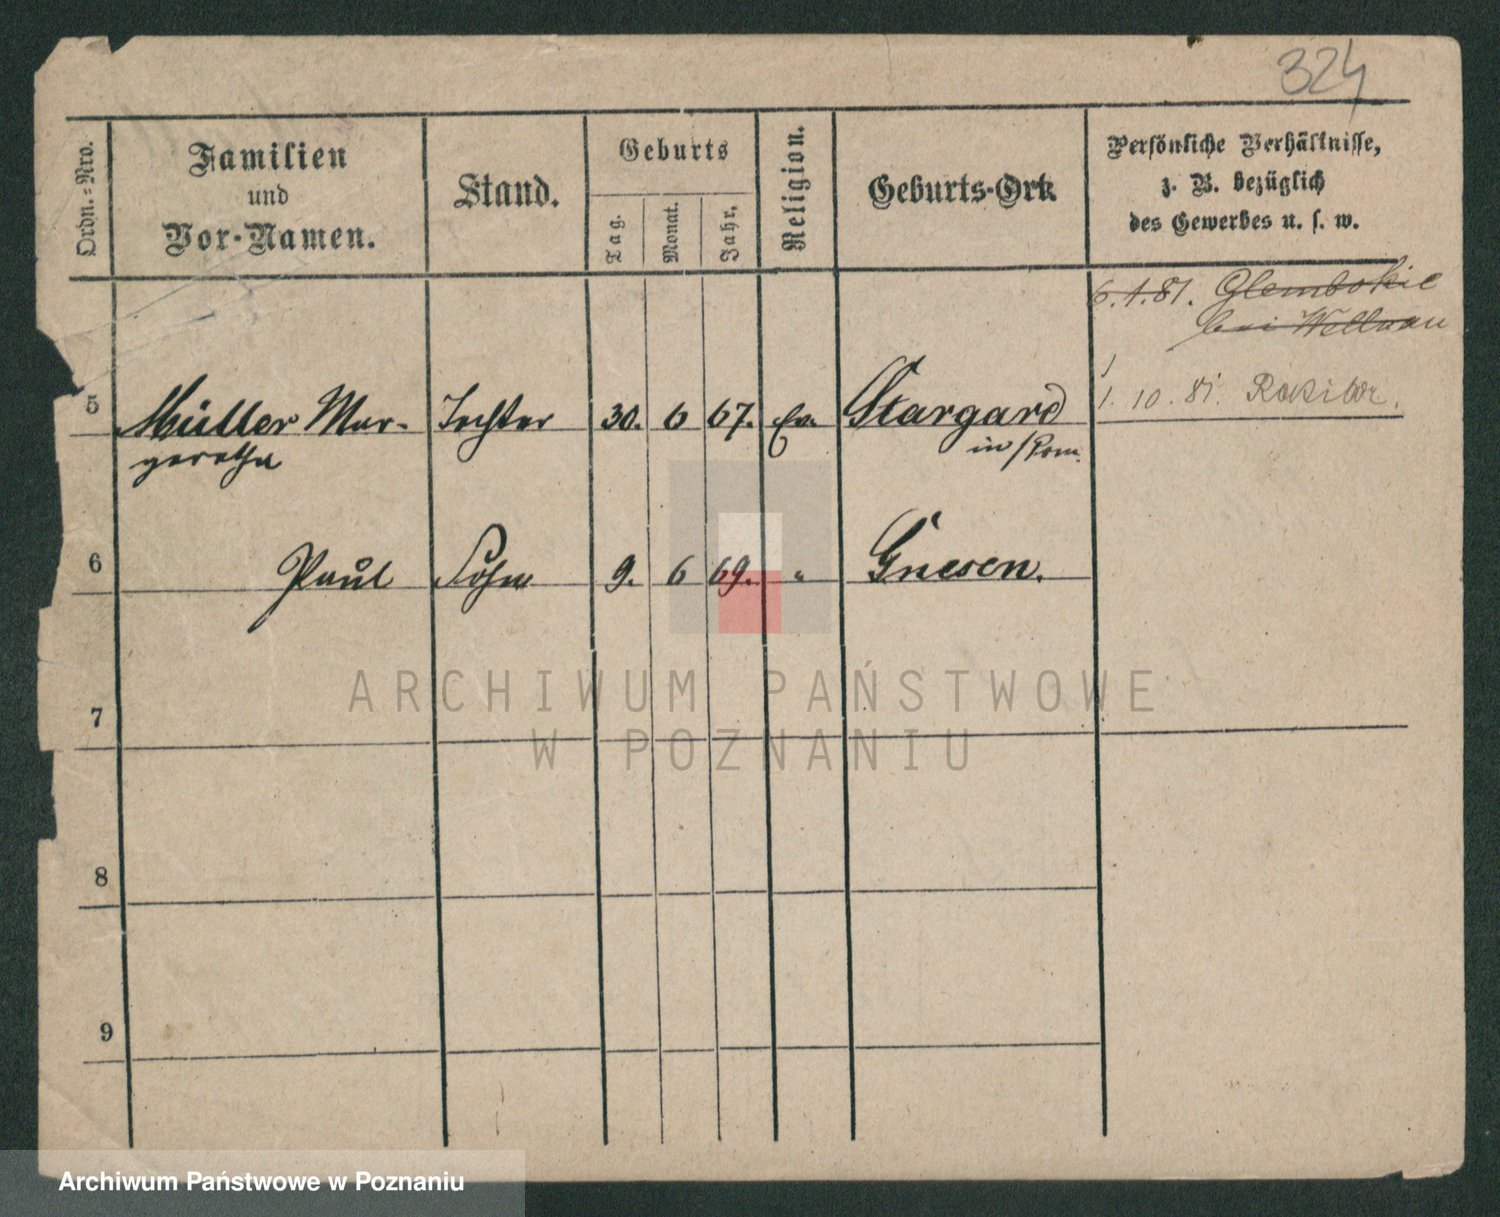 324
Ordn.=Nro.
Familien
und
Vor-Namen.
Stand.
Geburts
Tag.
Monat.
Jahr.
Religion.
Geburts-Ort.
Persönliche Verhältnisse,
z. B. bezüglich
des Gewerbes u. s. w.
6.1.81. Glembokie
bei Wellnau
5 Müller Mar- Tochter 30. 6 67. Ev. Stargard 1. 10. 81. Ratibor.
garetha in Pom.
6 Paul Sohn 9. 6 69. " Gnesen.
7
8
9
ARCHIWUM PAŃSTWOWE
W POZNANIU
Archiwum Państwowe w Poznaniu